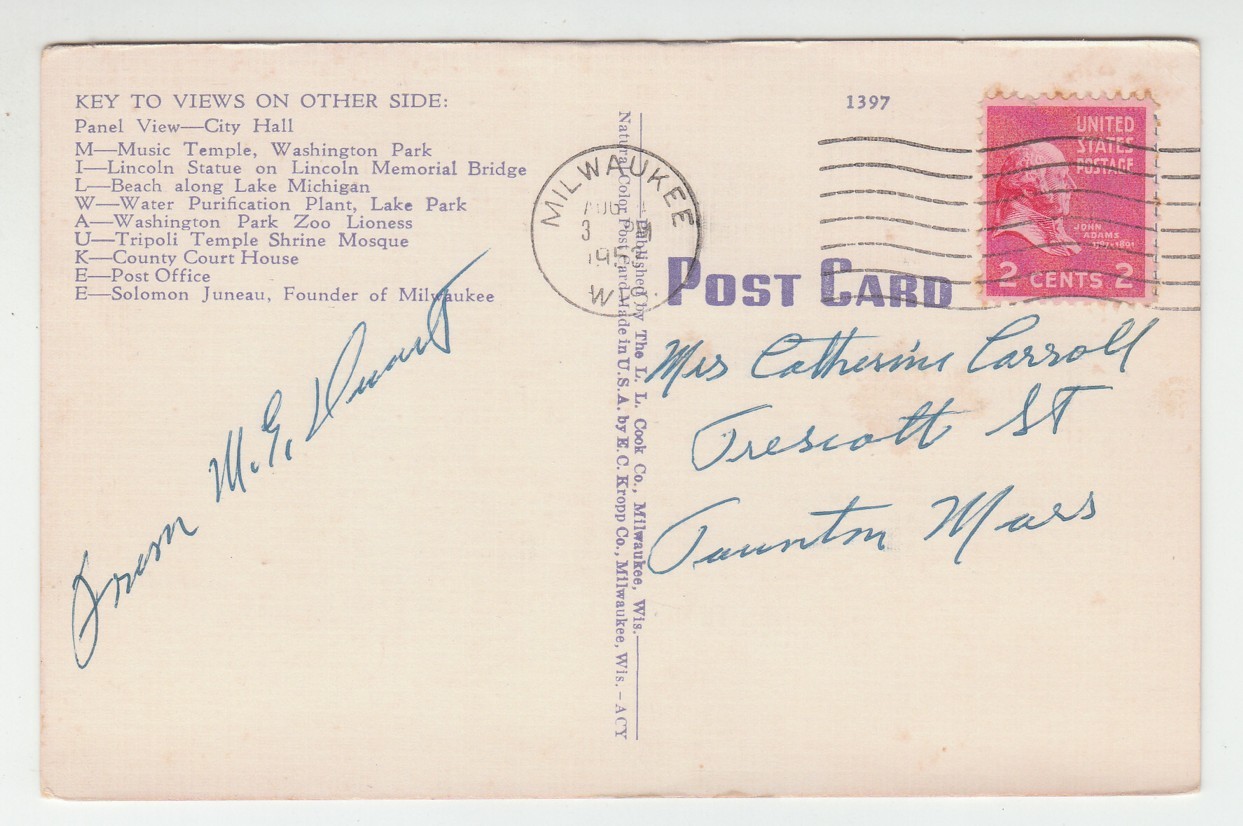 KEY TO VIEWS ON OTHER SIDE:
Panel View—City Hall
M—Music Temple, Washington Park
I—Lincoln Statue on Lincoln Memorial Bridge
L—Beach along Lake Michigan
W—Water Purification Plant, Lake Park
A—Washington Park Zoo Lioness
U—Tripoli Temple Shrine Mosque
K—County Court House
E—Post Office
E—Solomon Juneau, Founder of Milwaukee
From M. G.
Published by The L. L. Cook Co., Milwaukee, Wis.
Natural Color Post Card Made in U.S.A. by E. C. Kropp Co., Milwaukee, Wis. – ACY
MILWAUKEE
AUG
3 PM
WIS.
1397
UNITED
STATES
POSTAGE
JOHN
ADAMS
1797-1801
2 CENTS 2
POST CARD
Mrs Catherine Carroll
Trescott ST
Taunton Mass